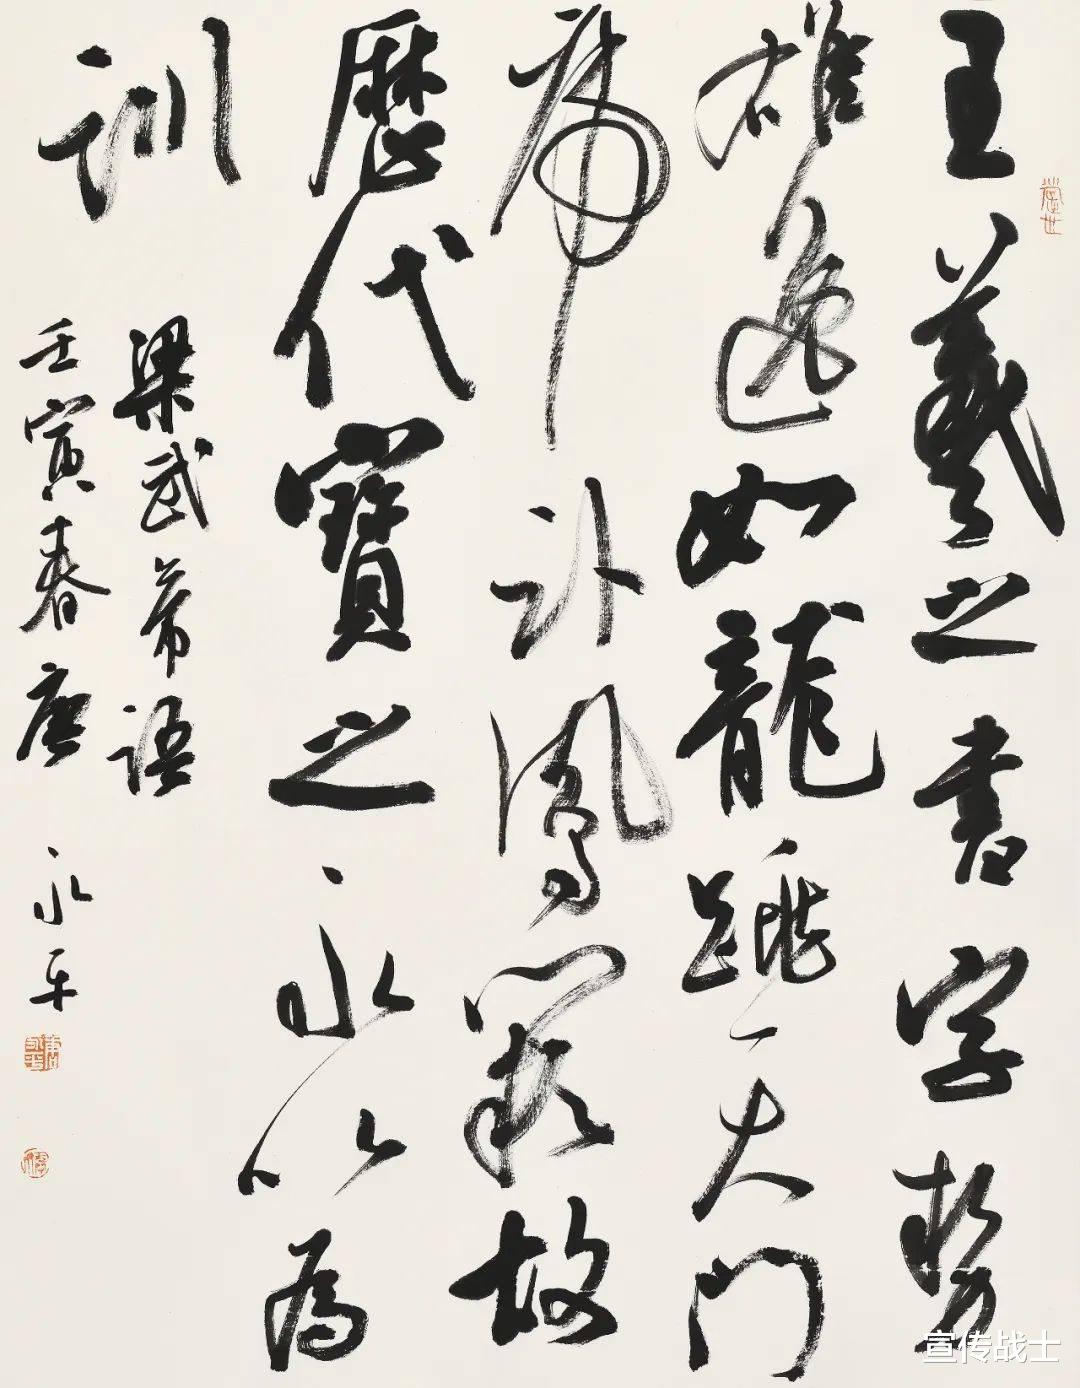 王羲之書字勢
雄逸如龍跳天門
虎卧鳳闕故
歷代寶之永以為
訓
梁武帝語
壬寅春唐永平
宣传战士